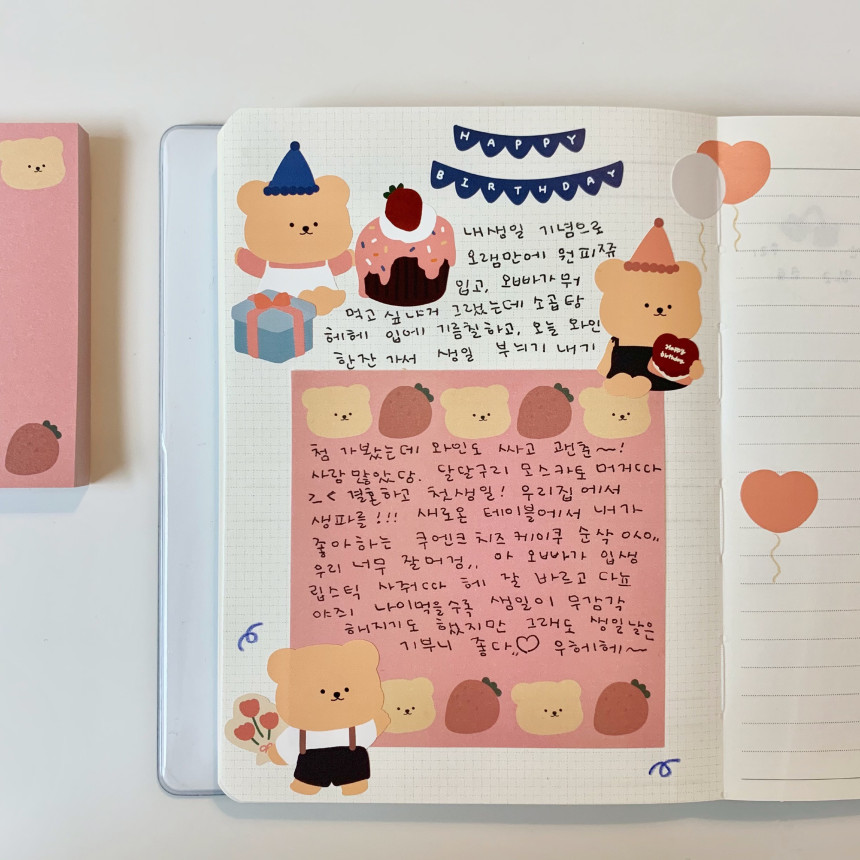 HAPPY
BIRTHDAY
내생일 기념으로
오랜만에 원피쮸
입고, 오빠가 뭐
먹고 싶냐거 그랬는데 소곱탕
헤헤 입에 기름칠하고, 오늘 와인
한잔 가서 생일 부늬기 내기
Happy
birthday
첨 가봤는데 와인도 싸고 괜춘~!
사람 많았당. 달달구리 모스카토 머거따
><  결혼하고 첫생일! 우리집에서
생파를!!! 새로온 테이블에서 내가
좋아하는 쿠엔크 치즈케이쿠 순삭
우리 너무 잘머겅,, 아 오빠가 입생
립스틱 사줘따 헤 잘 바르고 다뇨
야죄 나이먹을수록 생일이 무감각
해지기도 했지만 그래도 생일날은
기부니 좋다,,♡ 우헤헤~